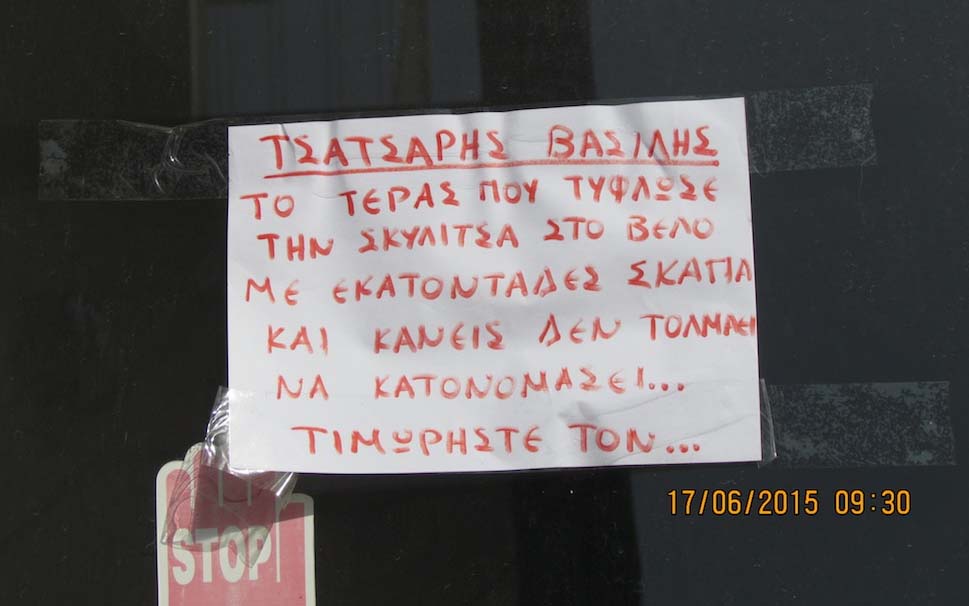 ΤΣΑΤΣΑΡΗΣ ΒΑΣΙΛΗΣ
ΤΟ ΤΕΡΑΣ ΠΟΥ ΤΥΦΛΩΣΕ
ΤΗΝ ΣΚΥΛΙΤΣΑ ΣΤΟ ΒΕΛΟ
ΜΕ ΕΚΑΤΟΝΤΑΔΕΣ ΣΚΑΓΙΑ
ΚΑΙ ΚΑΝΕΙΣ ΔΕΝ ΤΟΛΜΑΕΙ
ΝΑ ΚΑΤΟΝΟΜΑΣΕΙ...
ΤΙΜΩΡΗΣΤΕ ΤΟΝ...
17/06/2015 09:30
STOP